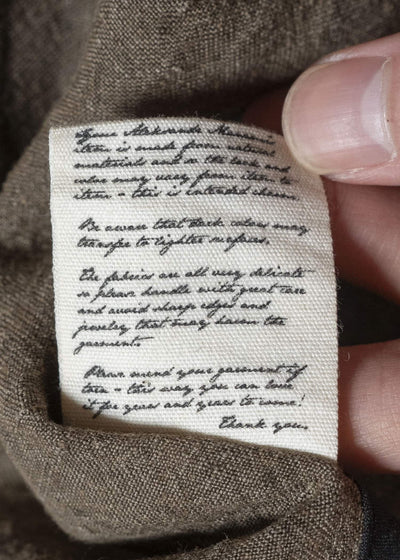 Your Aleksandr Manamïs
item is made from natural
materials and so the look and
color may vary from item to
item - this is intended charm.
Be aware that dark colors may
transfer to lighter surfaces.
The fabrics are all very delicate
so please handle with great care
and avoid sharp edges and
jewelry that may harm the
garments.
Please mend your garment if
torn - this way you can love
it for years and years to come!
Thank you.